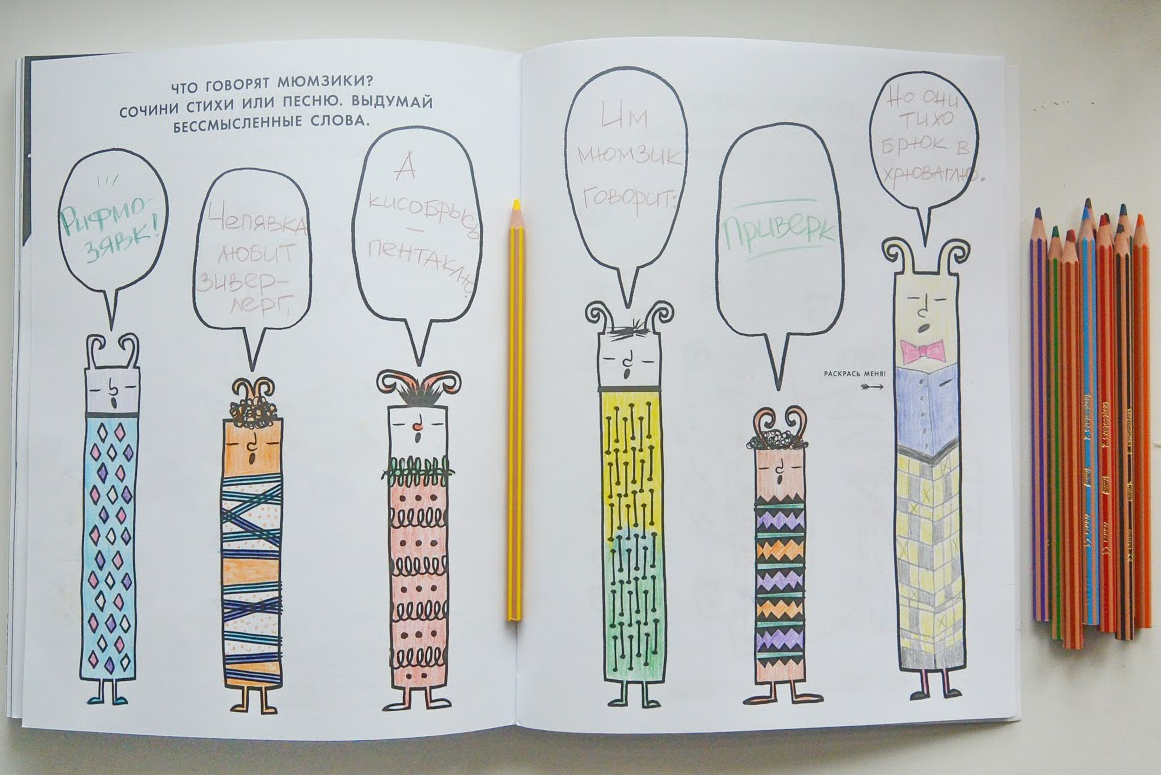 ЧТО ГОВОРЯТ МЮМЗИКИ?
СОЧИНИ СТИХИ ИЛИ ПЕСНЮ. ВЫДУМАЙ
БЕССМЫСЛЕННЫЕ СЛОВА.
Рифмо-
зявк!
Челявка
любит
зивер-
лерг,
А
кисобрысь
–
пентаклю!
Им
мюмзик
говорит:
Приверк
Но они
тихо
брюк в
хрюваглю.
РАСКРАСЬ МЕНЯ!